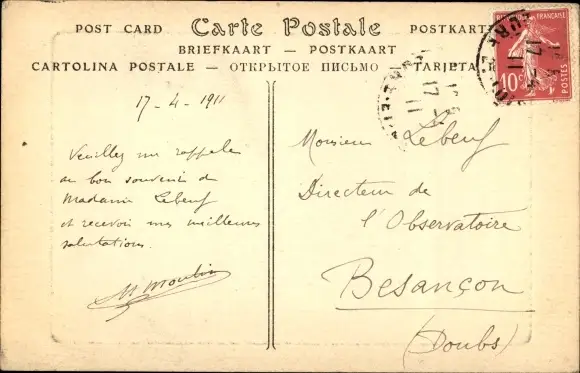 POST CARD Carte Postale POSTKARTE
BRIEFKAART — POSTKAART
CARTOLINA POSTALE — ОТКРЫТОЕ ПИСЬМО — TARJETA
17-4-1911
Veuillez me rappeler
au bon souvenir de
Madame Lebeuf
et recevoir mes meilleures
salutations.
M Moulin
Monsieur Lebeuf
Directeur de
l'Observatoire
Besançon
(Doubs)
FRANÇAISE
10c
POSTES
17 -4
11
17 -4
11